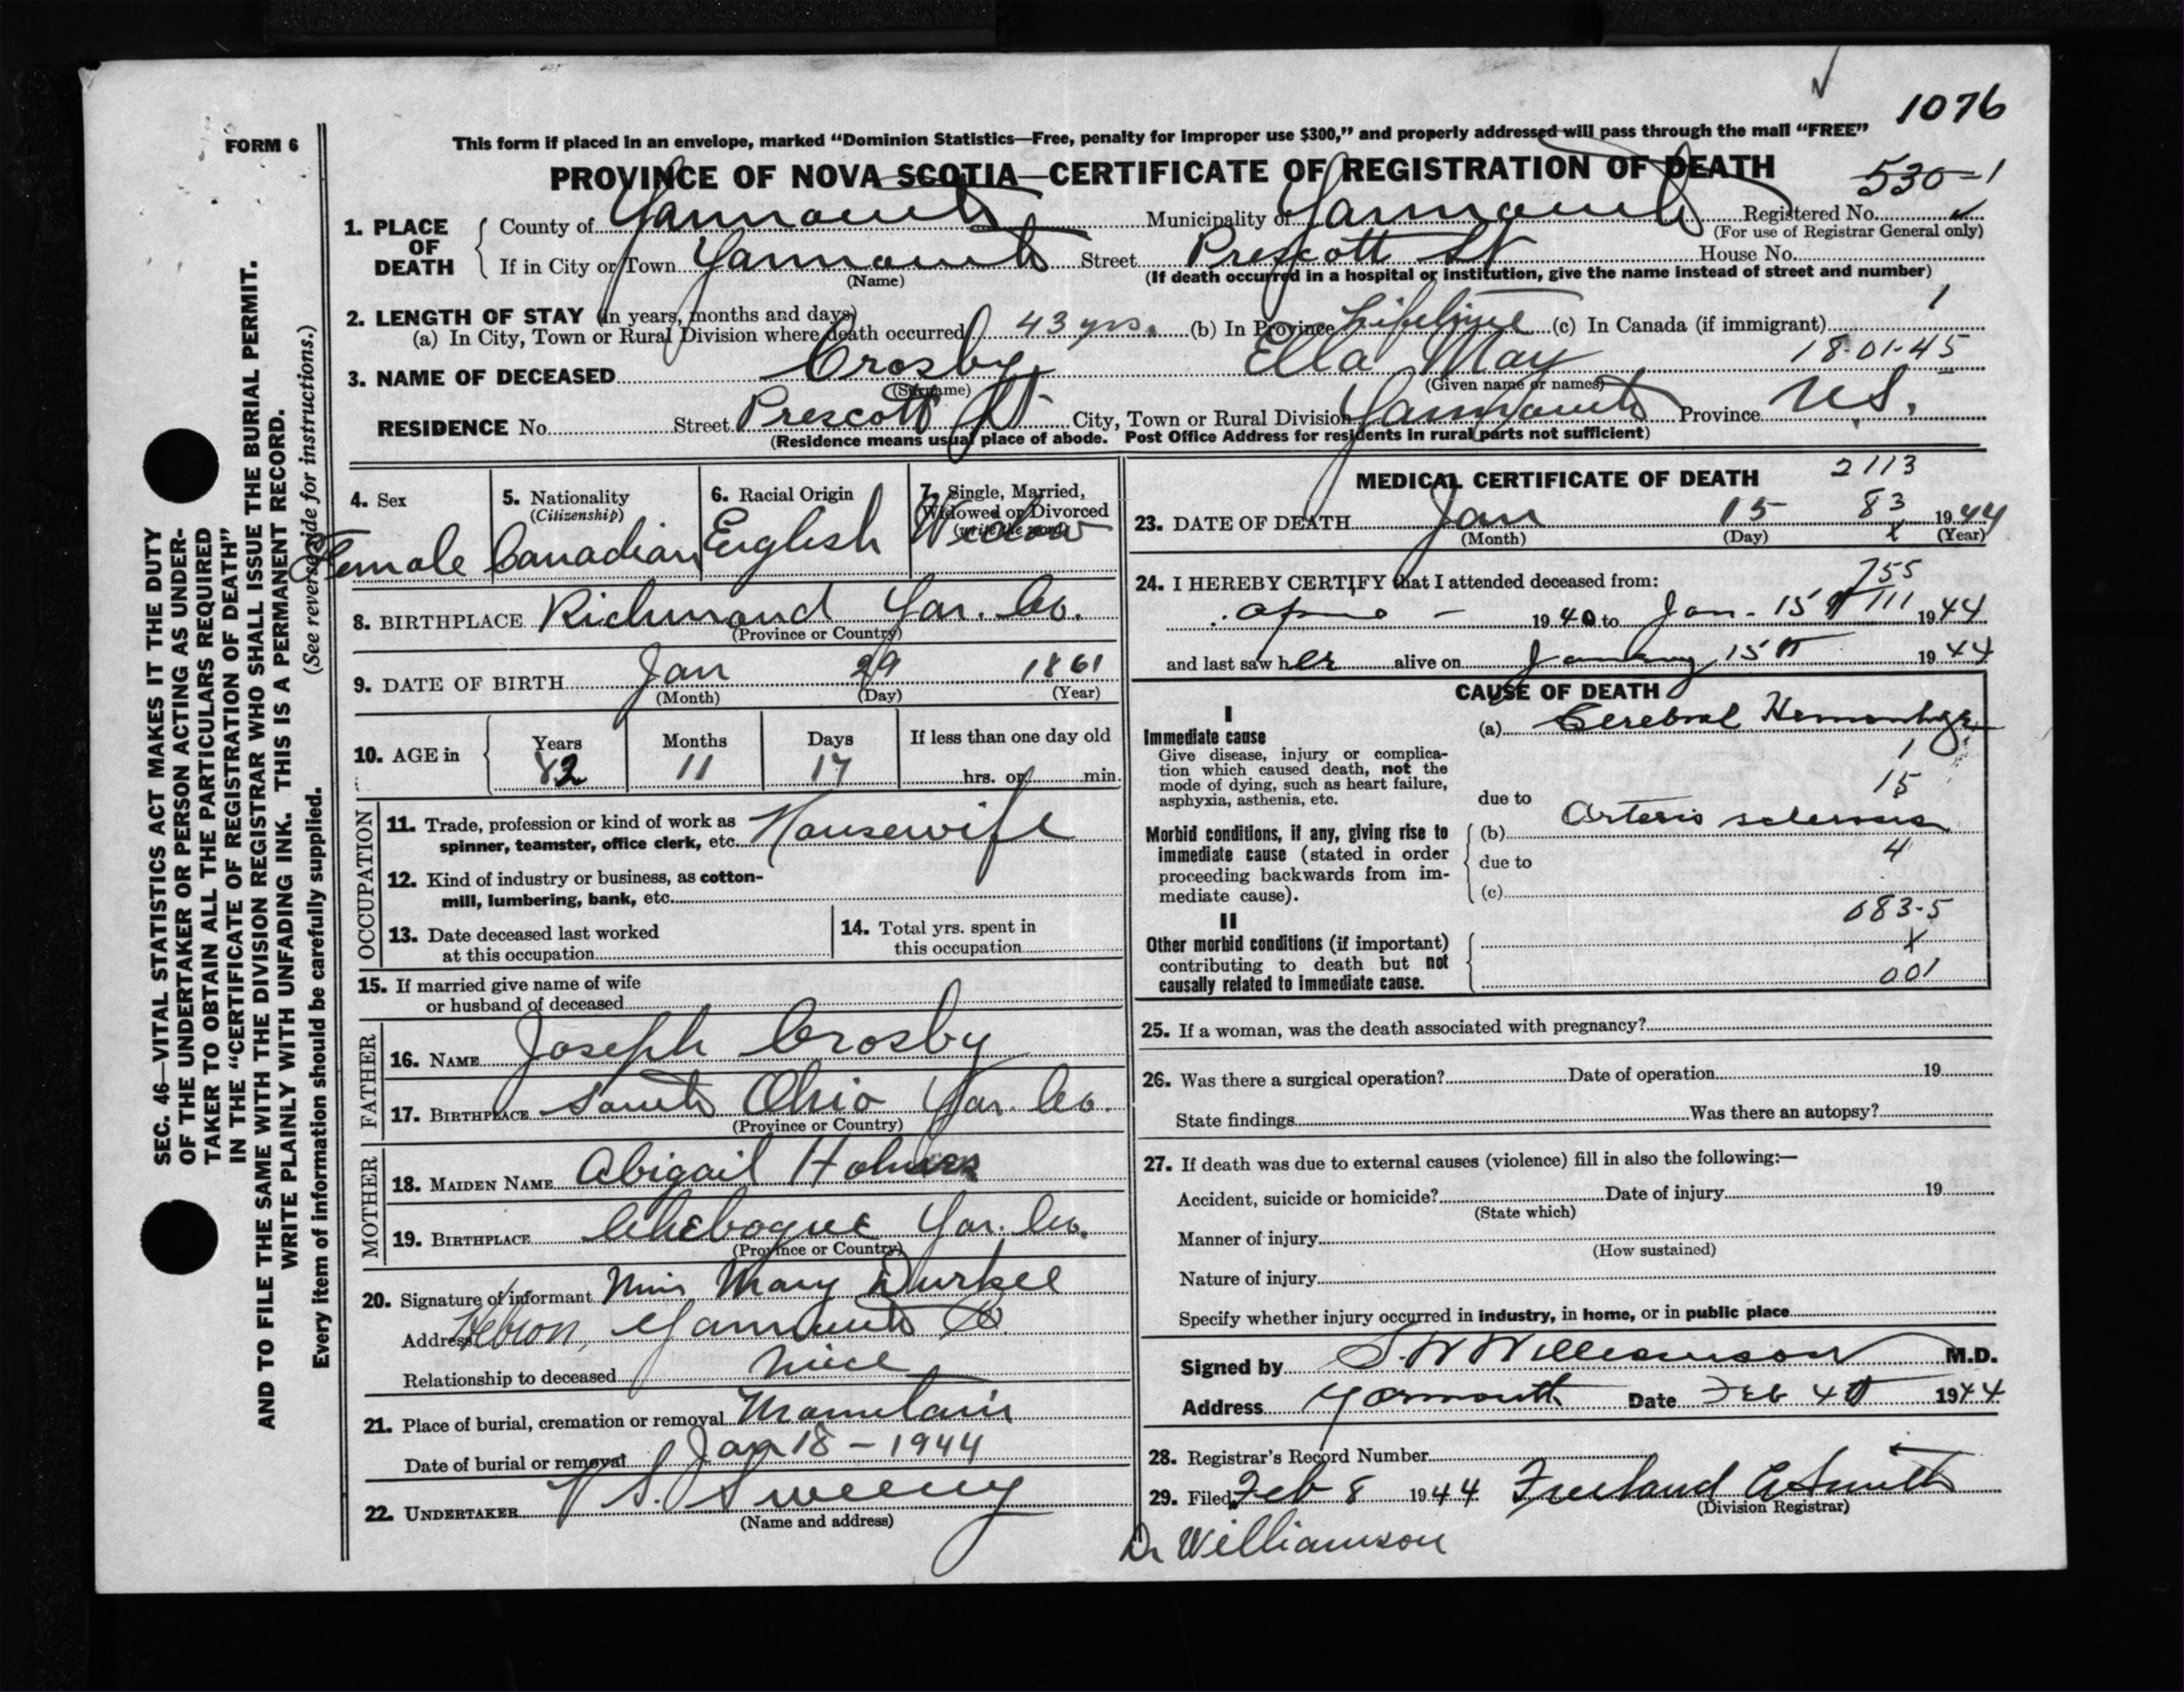 1076
FORM 6
This form if placed in an envelope, marked “Dominion Statistics—Free, penalty for improper use $300,” and properly addressed will pass through the mail “FREE”
PROVINCE OF NOVA SCOTIA—CERTIFICATE OF REGISTRATION OF DEATH
530-1
1. PLACE OF DEATH
County of Yarmouth Municipality of Yarmouth Registered No.
(For use of Registrar General only)
If in City or Town Yarmouth Street Prescott St House No.
(Name) (If death occurred in a hospital or institution, give the name instead of street and number)
2. LENGTH OF STAY (in years, months and days) 1
(a) In City, Town or Rural Division where death occurred 43 yrs. (b) In Province Lifetime (c) In Canada (if immigrant)
18-01-45
3. NAME OF DECEASED Crosby Ella May
(Surname) (Given name or names)
RESIDENCE No. Street Prescott St City, Town or Rural Division Yarmouth Province N.S.
(Residence means usual place of abode. Post Office Address for residents in rural parts not sufficient)
4. Sex
Female
5. Nationality
(Citizenship)
Canadian
6. Racial Origin
English
7. Single, Married,
Widowed or Divorced
(write the word)
Widow
8. BIRTHPLACE Richmond Yar. Co.
(Province or Country)
9. DATE OF BIRTH Jan 29 1861
(Month) (Day) (Year)
10. AGE in
Years Months Days If less than one day old
82 11 17 hrs. or min.
OCCUPATION
11. Trade, profession or kind of work as
spinner, teamster, office clerk, etc. Housewife
12. Kind of industry or business, as cotton-
mill, lumbering, bank, etc.
13. Date deceased last worked
at this occupation
14. Total yrs. spent in
this occupation
15. If married give name of wife
or husband of deceased
FATHER
16. NAME Joseph Crosby
17. BIRTHPLACE South Ohio Yar. Co.
(Province or Country)
MOTHER
18. MAIDEN NAME Abigail Holmes
19. BIRTHPLACE Chebogue Yar. Co.
(Province or Country)
20. Signature of informant Miss Mary Durkee
Address Hebron, Yarmouth Co.
Relationship to deceased niece
21. Place of burial, cremation or removal Mountain
Date of burial or removal Jan 18 - 1944
22. UNDERTAKER V S. Sweeny
(Name and address)
MEDICAL CERTIFICATE OF DEATH
2113
83
23. DATE OF DEATH Jan 15 1944
(Month) (Day) (Year)
24. I HEREBY CERTIFY that I attended deceased from:
755
1940 to Jan. 15 111 1944
and last saw her alive on January 15th 1944
CAUSE OF DEATH
I
Immediate cause
Give disease, injury or complica-
tion which caused death, not the
mode of dying, such as heart failure,
asphyxia, asthenia, etc.
(a) Cerebral Hemorrhage
1
15
due to
Morbid conditions, if any, giving rise to
immediate cause (stated in order
proceeding backwards from im-
mediate cause).
(b) Arterio sclerosis
4
due to
(c)
083-5
II
Other morbid conditions (if important)
contributing to death but not
causally related to immediate cause.
X
001
25. If a woman, was the death associated with pregnancy?
26. Was there a surgical operation? Date of operation 19
State findings Was there an autopsy?
27. If death was due to external causes (violence) fill in also the following:—
Accident, suicide or homicide? Date of injury 19
(State which)
Manner of injury
(How sustained)
Nature of injury
Specify whether injury occurred in industry, in home, or in public place
Signed by S.W Williamson M.D.
Address Yarmouth Date Feb 4th 1944
28. Registrar's Record Number
29. Filed Feb 8 1944 Freeland A Smith
(Division Registrar)
Dr Williamson
SEC. 46—VITAL STATISTICS ACT MAKES IT THE DUTY
OF THE UNDERTAKER OR PERSON ACTING AS UNDER-
TAKER TO OBTAIN ALL THE PARTICULARS REQUIRED
IN THE “CERTIFICATE OF REGISTRATION OF DEATH”
AND TO FILE THE SAME WITH THE DIVISION REGISTRAR WHO SHALL ISSUE THE BURIAL PERMIT.
WRITE PLAINLY WITH UNFADING INK. THIS IS A PERMANENT RECORD.
Every item of information should be carefully supplied. (See reverse side for instructions.)